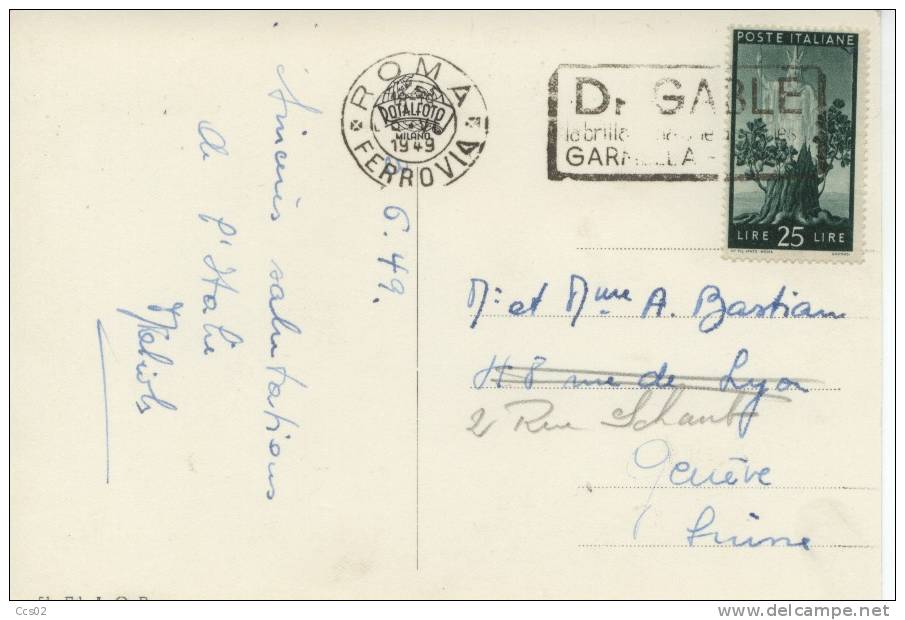 Sincères salutations
de l'Italie
6.49.
ROMA
FERROVIA
ROTALFOTO
MILANO
1949
Dr GABLE
la brilla
GAR
POSTE ITALIANE
LIRE 25 LIRE
Mr et Mme A. Bastian
48 rue de Lyon
2 Rue Schaub
Genève
Suisse
Ccs02
www.delcampe.net